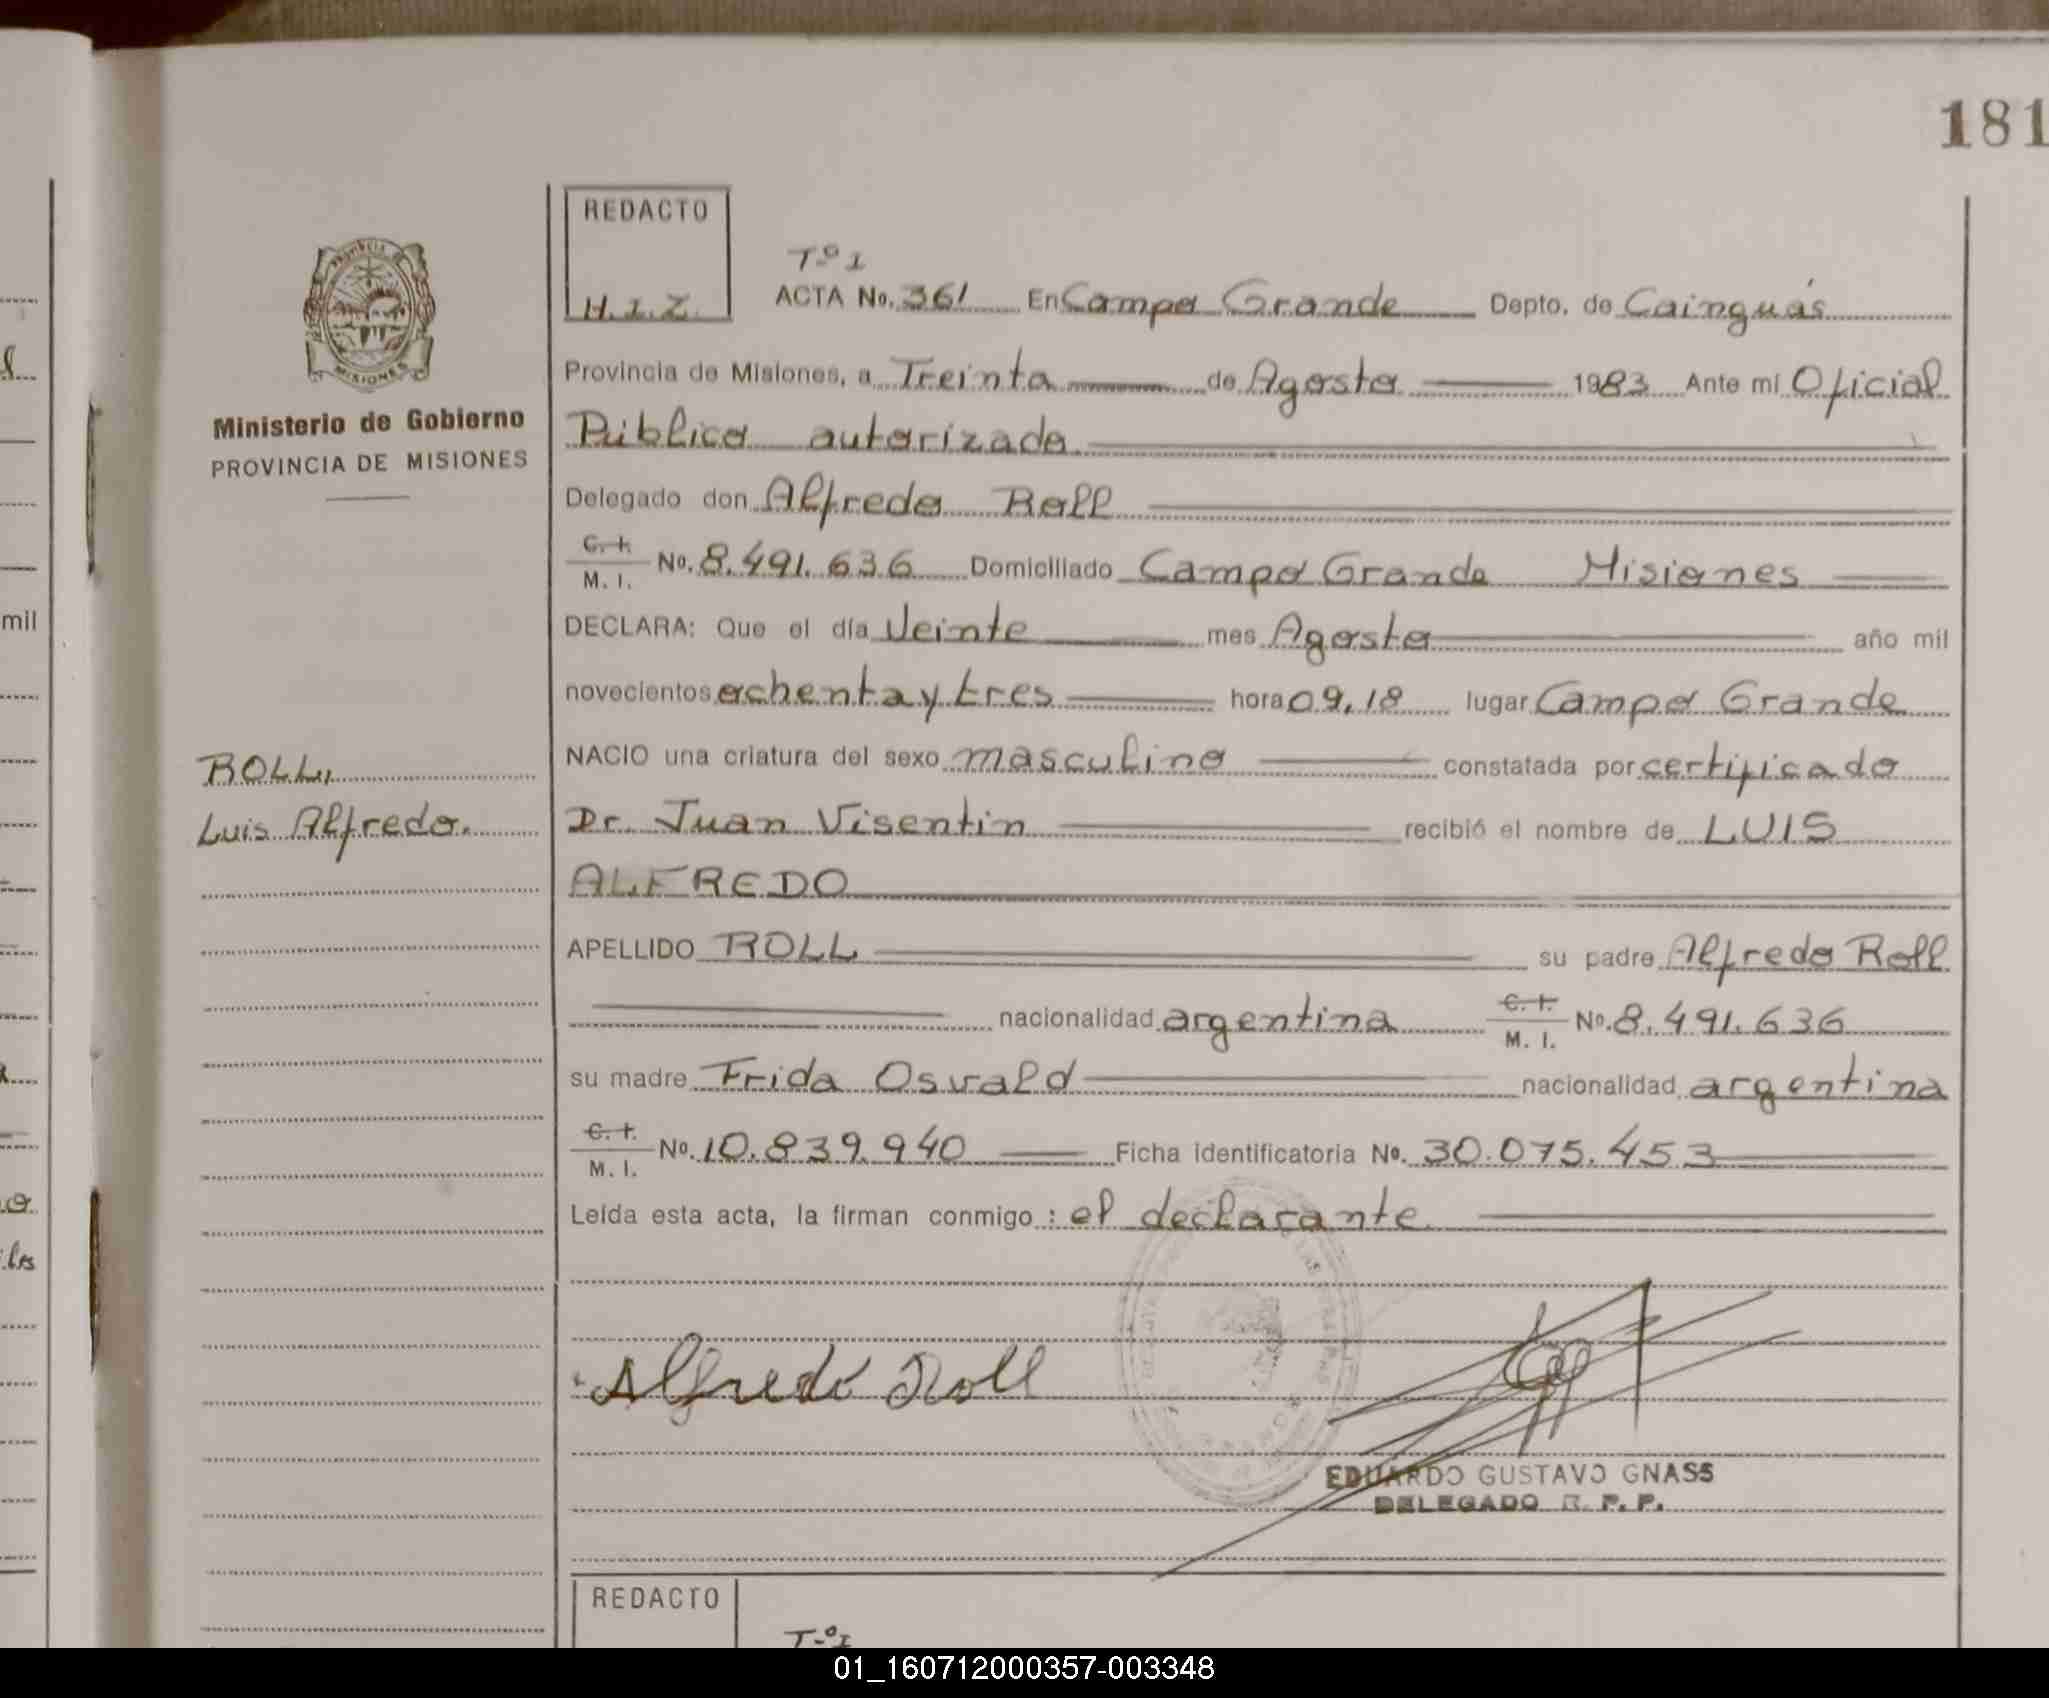 181
REDACTO
H.I.Z.
Tº I
ACTA No. 361 En Campo Grande Depto. de Cainguás
Provincia de Misiones, a Treinta de Agosto 1983 Ante mi Oficial
Público autorizado
Delegado don Alfredo Roll
C. I.
M. I. No. 8.491.636 Domiciliado Campo Grande Misiones
DECLARA: Que el día Veinte mes Agosto año mil
novecientos ochenta y tres hora 09,18 lugar Campo Grande
NACIO una criatura del sexo masculino constatada por certificado
Dr. Juan Visentin recibió el nombre de LUIS
ALFREDO
APELLIDO ROLL su padre Alfredo Roll
nacionalidad argentina C. I.
M. I. No. 8.491.636
su madre Frida Osvald nacionalidad argentina
C. I.
M. I. No. 10.839.940 Ficha identificatoria No. 30.075.453
Leída esta acta, la firman conmigo: el declarante.
Alfredo Roll
EDUARDO GUSTAVO GNASS
DELEGADO R. P. P.
Provincia de
MISIONES
Ministerio de Gobierno
PROVINCIA DE MISIONES
ROLL,
Luis Alfredo.
mil
REDACTO
Tº I
01_160712000357-003348